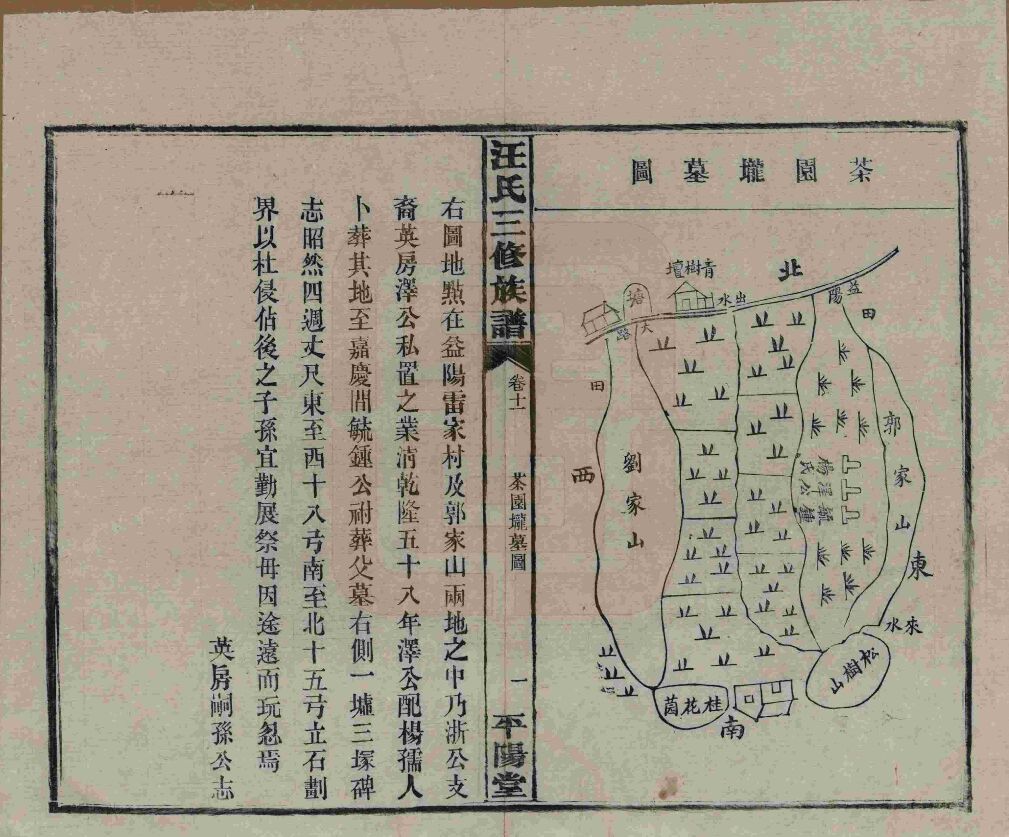 茶園壠墓圖
北
青樹壇
塘
出水
大路
益陽
田
田
郭家山
劉家山
西
毓鍾
澤公
楊氏
東
來水
松樹山
桂花䓢
南
汪氏三修族譜
卷十一
茶園壠墓圖
一
平陽堂
右圖地㸃在益陽雷家村及郭家山兩地之中乃浙公支
裔英房澤公私置之業清乾隆五十八年澤公配楊孺人
卜葬其地至嘉慶間毓鍾公祔葬父墓右側一墟三塚碑
志昭然四週丈尺東至西十八弓南至北十五弓立石劃
界以杜侵佔後之子孫宜勤展祭毋因途遠而玩忽焉
英房嗣孫公志